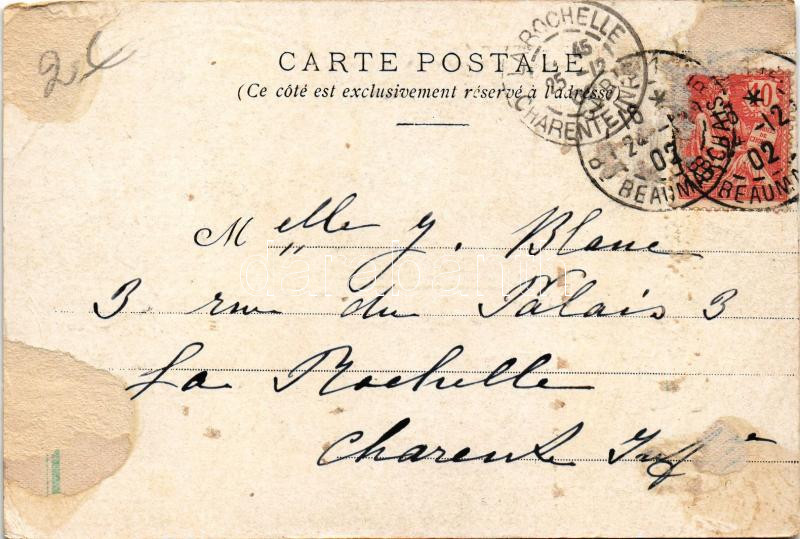 CARTE POSTALE
(Ce côté est exclusivement réservé à l'adresse)
24
LA ROCHELLE
45
25 -12
02
CHARENTE-INFRE
24 -12
02
Bd BEAUMARCHAIS
10
12
02
BEAUMA
Melle y. Blanc
3 rue du Palais 3
La Rochelle
Charente Infre